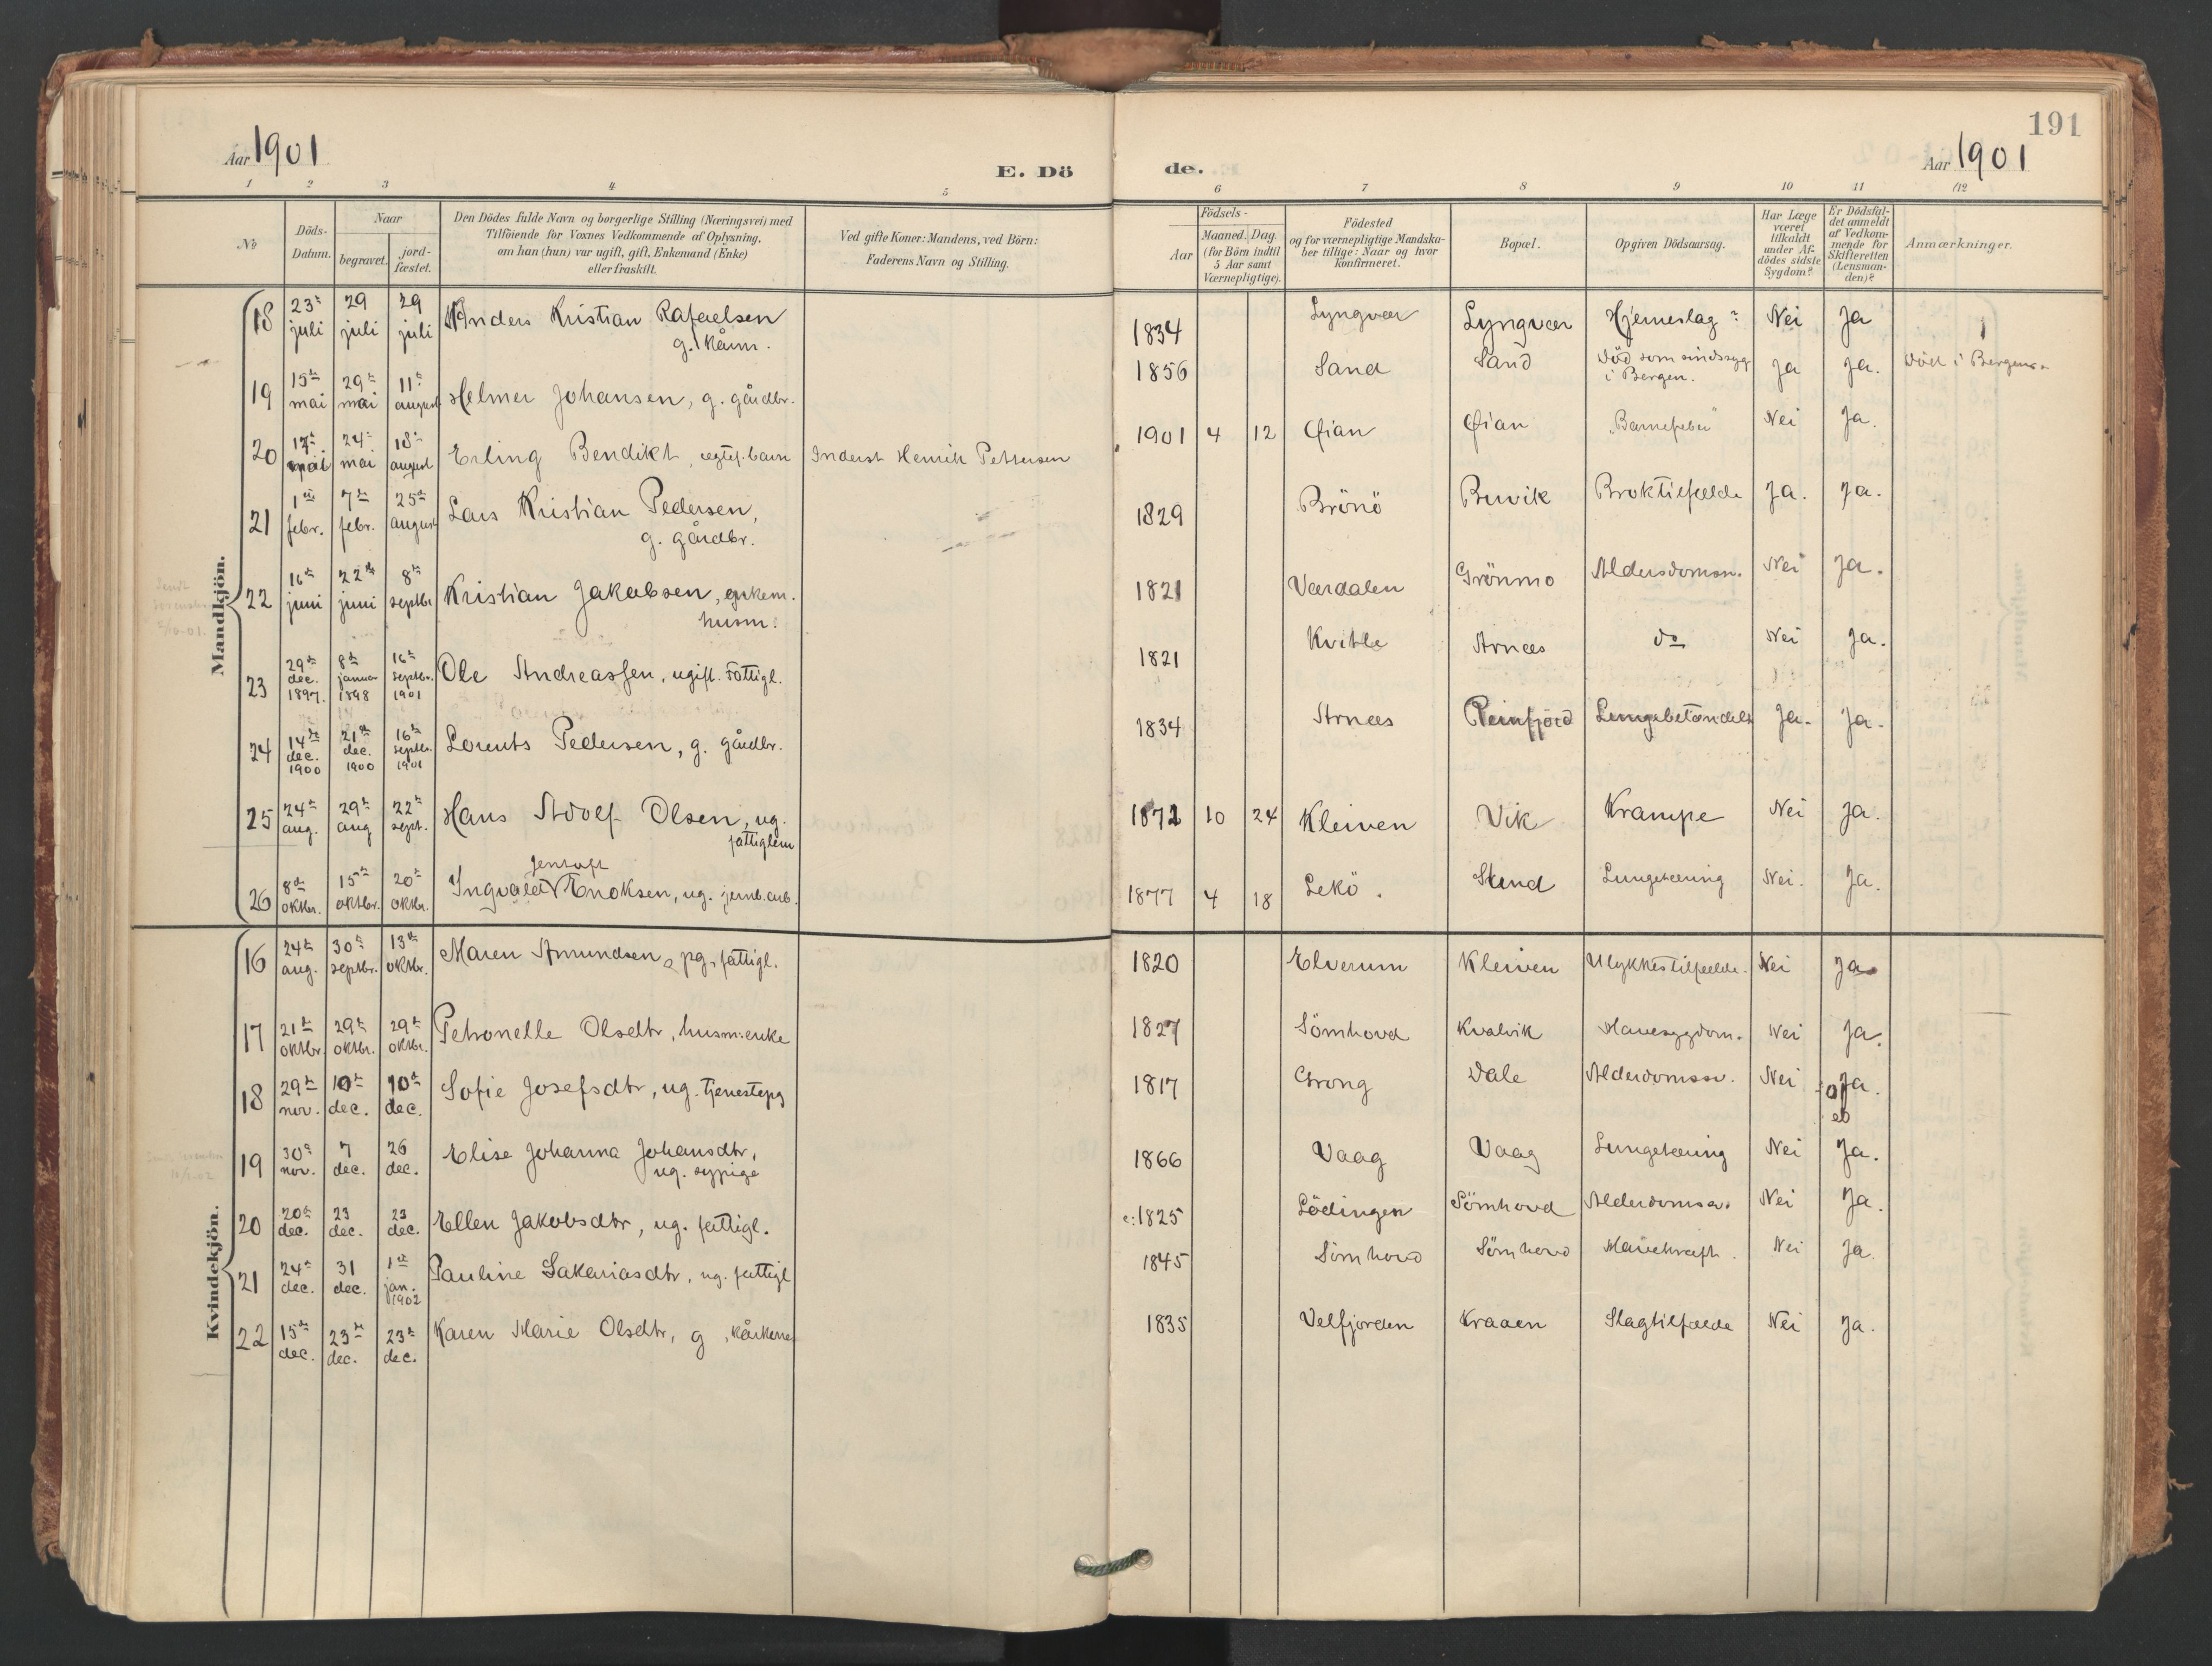 191
Aar 1901
E. Dö de.
Aar 1901
1 2 3 4 5 6 7 8 9 10 11 12
№
Döds-Datum.
Naar
begravet.
jord-fæstet.
Den Dödes fulde Navn og borgerlige Stilling (Næringsvei) med
Tilföiende for Voxnes Vedkommende af Oplysning,
om han (hun) var ugift, gift, Enkemand (Enke)
eller fraskilt.
Ved gifte Koner: Mandens, ved Börn:
Faderens Navn og Stilling.
Födsels-
Aar
Maaned. Dag.
(for Börn indtil
5 Aar samt
Værnepligtige).
Födested
og for værnepligtige Mandska-
ber tillige: Naar og hvor
konfirmeret.
Bopæl.
Opgiven Dödsaarsag.
Har Læge
været
tilkaldt
under Af-
dödes sidste
Sygdom?
Er Dödsfal-
det anmeldt
af Vedkom-
mende for
Skifteretten
(Lensman-
den)?
Anmærkninger.
Mandkjön.
18 23de juli 29 juli 29 juli Anders Kristian Rafaelsen 1834 Lyngvær Lyngvær Hjerneslag? Nei Ja
g. kårm.
19 15de mai 29de mai 11te august Helmer Johansen, g. gårdbr. 1856 Sand Sand Död som sindssyg Ja Ja. Död i Bergen
i Bergen.
20 17de mai 24de mai 18de august Erling Bendikt, ægtef. barn Inderst Henrik Pettersen 1901 4 12 Øian Øian "Barnefeber" Nei Ja.
21 1ste febr. 7de febr. 25de august Lars Kristian Pedersen, 1829 Brönö Buvik Broktilfælde Ja. Ja.
g. gårdbr.
22 16de juni 22de juni 8de septbr Kristian Jakobsen, enkem. 1821 Værdalen Grönmo Aldersdomssv. Nei Ja.
husm.
23 29de dec. 1897. 8de januar 1898 16de septbr. 1901 Ole Andreassen, ugift. fattigl. 1821 Kvithle Arnæs do Nei Ja.
24 14de dec. 1900 21de dec. 1900 16de septbr. 1901 Lorents Pedersen, g. gårdbr. 1834 Arnæs Reinfjord Lungebetændels Ja. Ja.
25 24de aug. 29de aug 22de sept. Hans Adolf Olsen, ug. 1872 10 24 Kleiven Vik Krampe Nei Ja.
fattiglem
26 8de oktbr. 15de oktbr. 20de oktbr. Ingvald Jentoft Enoksen, ug. jernb.arb. 1877 4 18 Lekö. Sund Lungetæring Nei. Ja.
Kvindekjön.
16 24de aug. 30te septbr. 13de oktbr. Maren Amundsen, pg, fattigl. 1820 Elverum Kleiven Ulykkestilfælde. Nei Ja
17 21de oktbr. 29de oktbr. 29de oktbr. Petronelle Olsdtr, husm:enke 1827 Sömhovd Kvalvik Mavesygdom. Nei Ja.
18 29de nov. 10de dec. 10de dec. Sofie Josefsdtr, ug. tjenestepg 1817 Grong Dale Alderdomssv. Nei Ja.
19 30te nov. 7 dec. 26 dec. Elise Johanna Johansdtr, 1866 Vaag Vaag Lungetæring Nei Ja.
ug. sypige
20 20de dec. 23 dec. 23 dec. Ellen Jakobsdtr, ug. fattigl. c:1825 Lödingen Sömhovd Alderdomssv. Nei Ja.
21 24de dec. 31 dec. 1ste jan. 1902 Pauline Sakariasdtr, ug. fattigl 1845 Sömhovd Sömhovd Mavekræft. Nei Ja.
22 15de dec. 23de dec. 23de dec. Karen Marie Olsdtr, g, kårkone 1835 Velfjorden Kraaen Slagtilfælde Nei Ja.